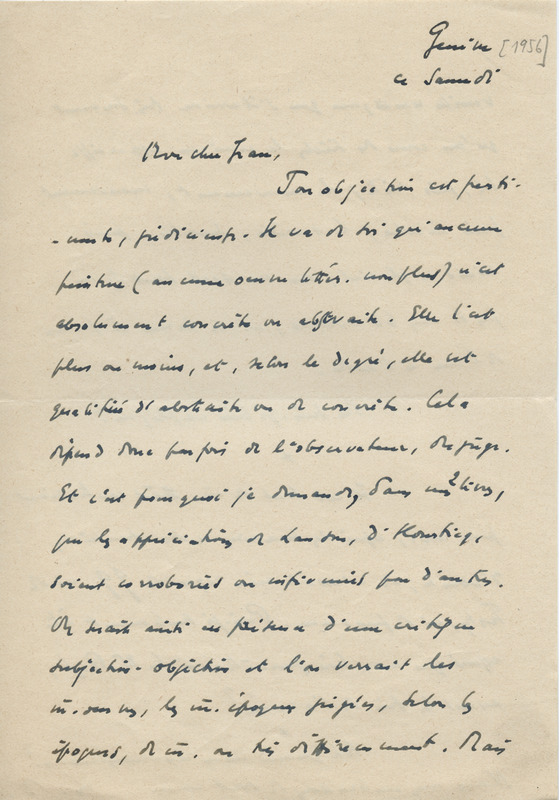 Genève [1956]
ce Samedi
Mon cher Jean,
Ton objection est perti-
-nente, judicieuse. Il va de soi qu'aucune
peinture (aucune oeuvre littér. non plus) n'est
absolument concrète ou abstraite. Elle l'est
plus ou moins, et, selon le degré, elle est
qualifiée d'abstraite ou de concrète. Cela
dépend donc parfois de l'observateur, du juge.
Et c'est pourquoi je demande, dans mes 2 livres,
que les appréciations de Lanson, d'Hourticq,
soient corroborées ou infirmées par d'autres.
On serait ainsi en présence d'une critique
subjectivo-objective et l'on verrait les
m. oeuvres, les m. époques jugées, selon les
époques, de m. ou très différemment. Mais